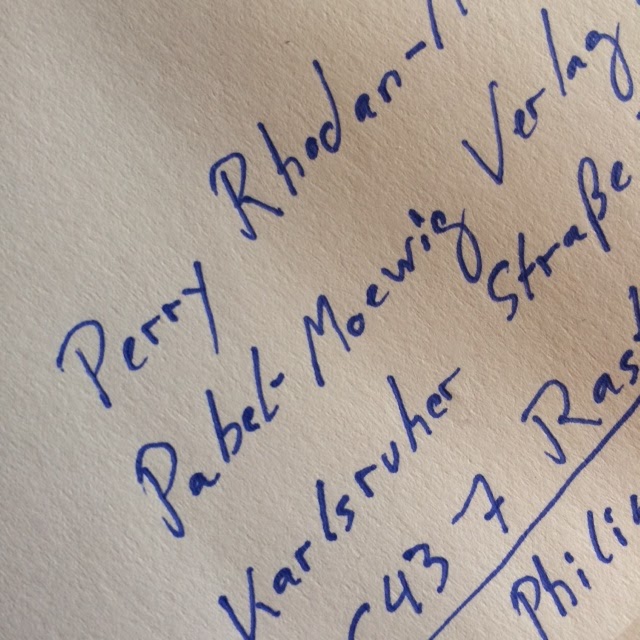 Perry Rhodan-
Pabel-Moewig Verlag
Karlsruher Straße
437 Ras
Phili